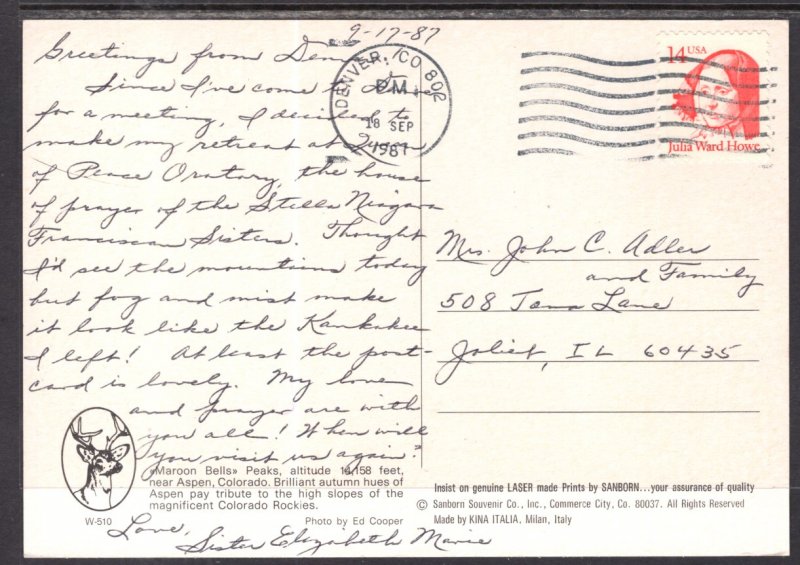 9-17-87
Greetings from
Since I've come to
for a meeting, I decided to
make my retreat at Queen
of Peace Oratory, the house
of prayer of the Stella Niagara
Franciscan Sisters. Thought
I'd see the mountains today
but fog and mist make
it look like the Kankakee
I left! At least the post-
card is lovely. My love
and prayer are with
you all! When will
you visit us again?
Love,
Sister Elizabeth Marie
«Maroon Bells» Peaks, altitude 14,158 feet,
near Aspen, Colorado. Brilliant autumn hues of
Aspen pay tribute to the high slopes of the
magnificent Colorado Rockies.
W-510
Photo by Ed Cooper
DENVER, CO 802
PM
18 SEP
1987
14 USA
Julia Ward Howe
Mrs. John C. Adler
and Family
508 Lane
Joliet, IL 60435
Insist on genuine LASER made Prints by SANBORN...your assurance of quality
© Sanborn Souvenir Co., Inc., Commerce City, Co. 80037. All Rights Reserved
Made by KINA ITALIA, Milan, Italy